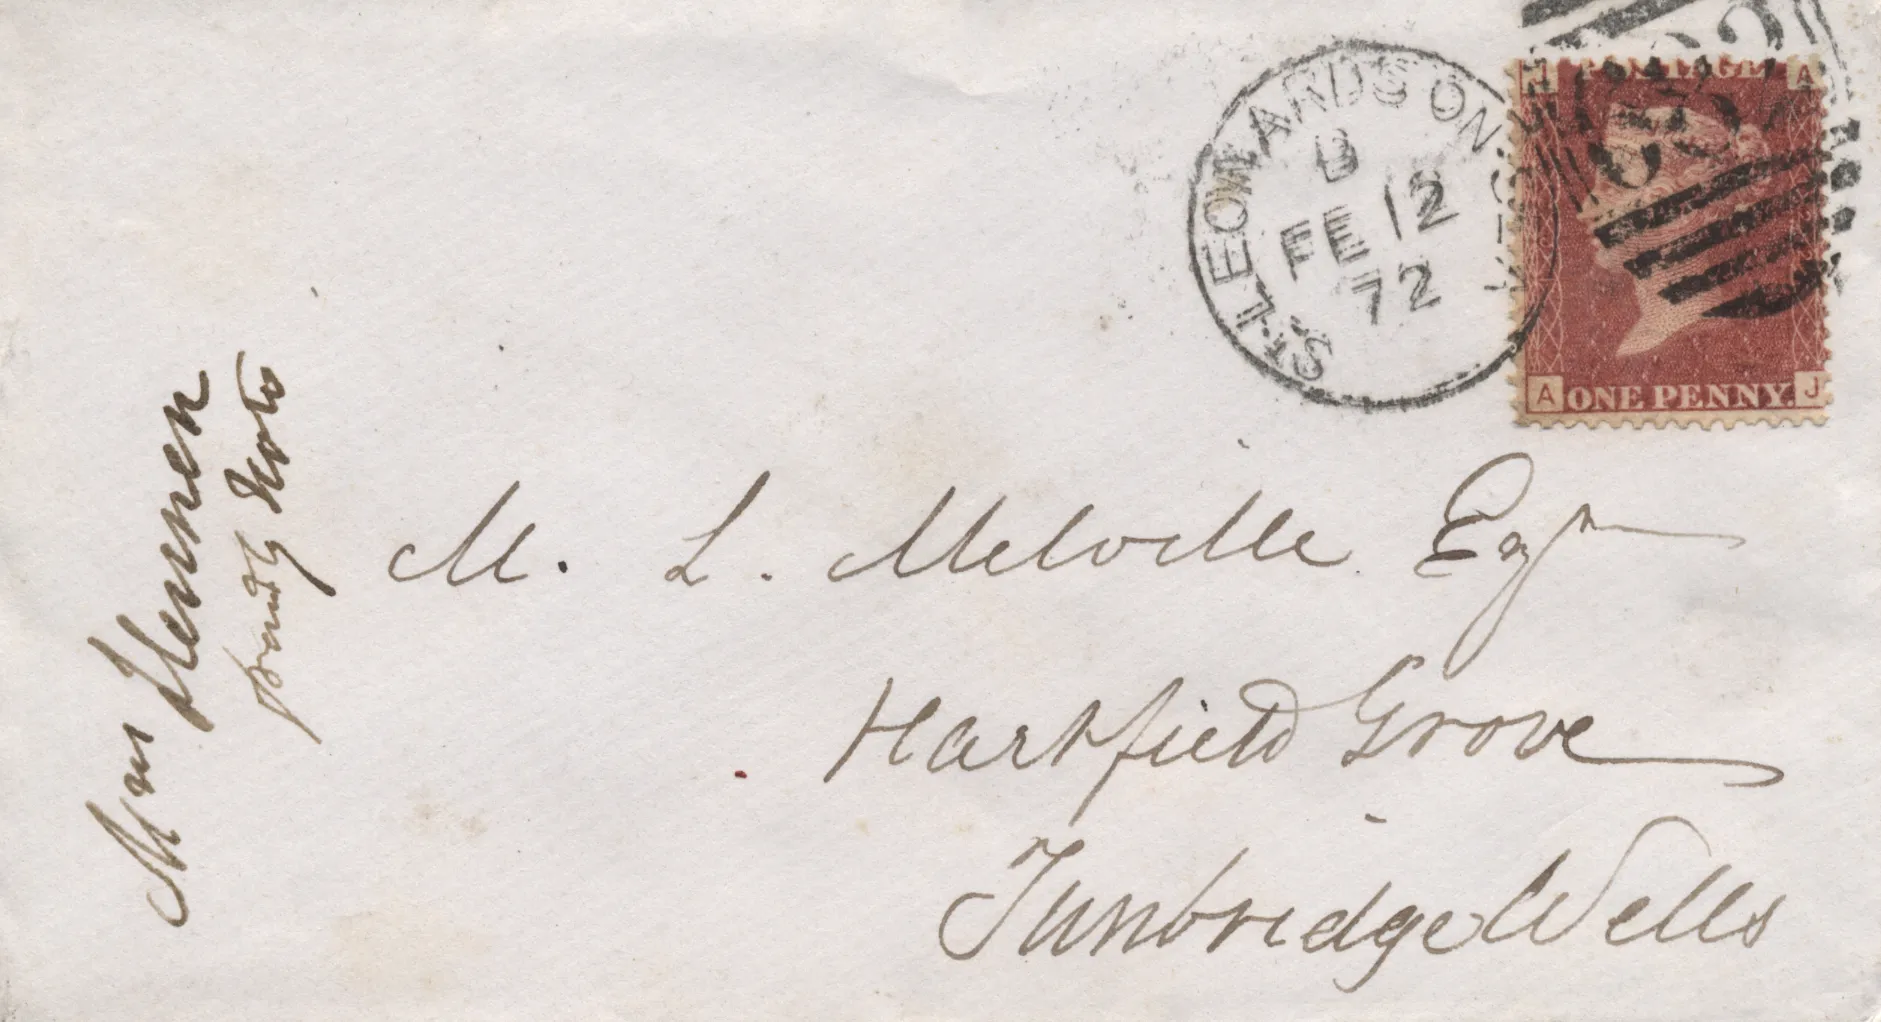 St. LEONARDS ON SEA
B
FE 12
72
POSTAGE
J A
A ONE PENNY. J
M. L. Melville Esqr
Hartfield Grove
Tunbridge Wells